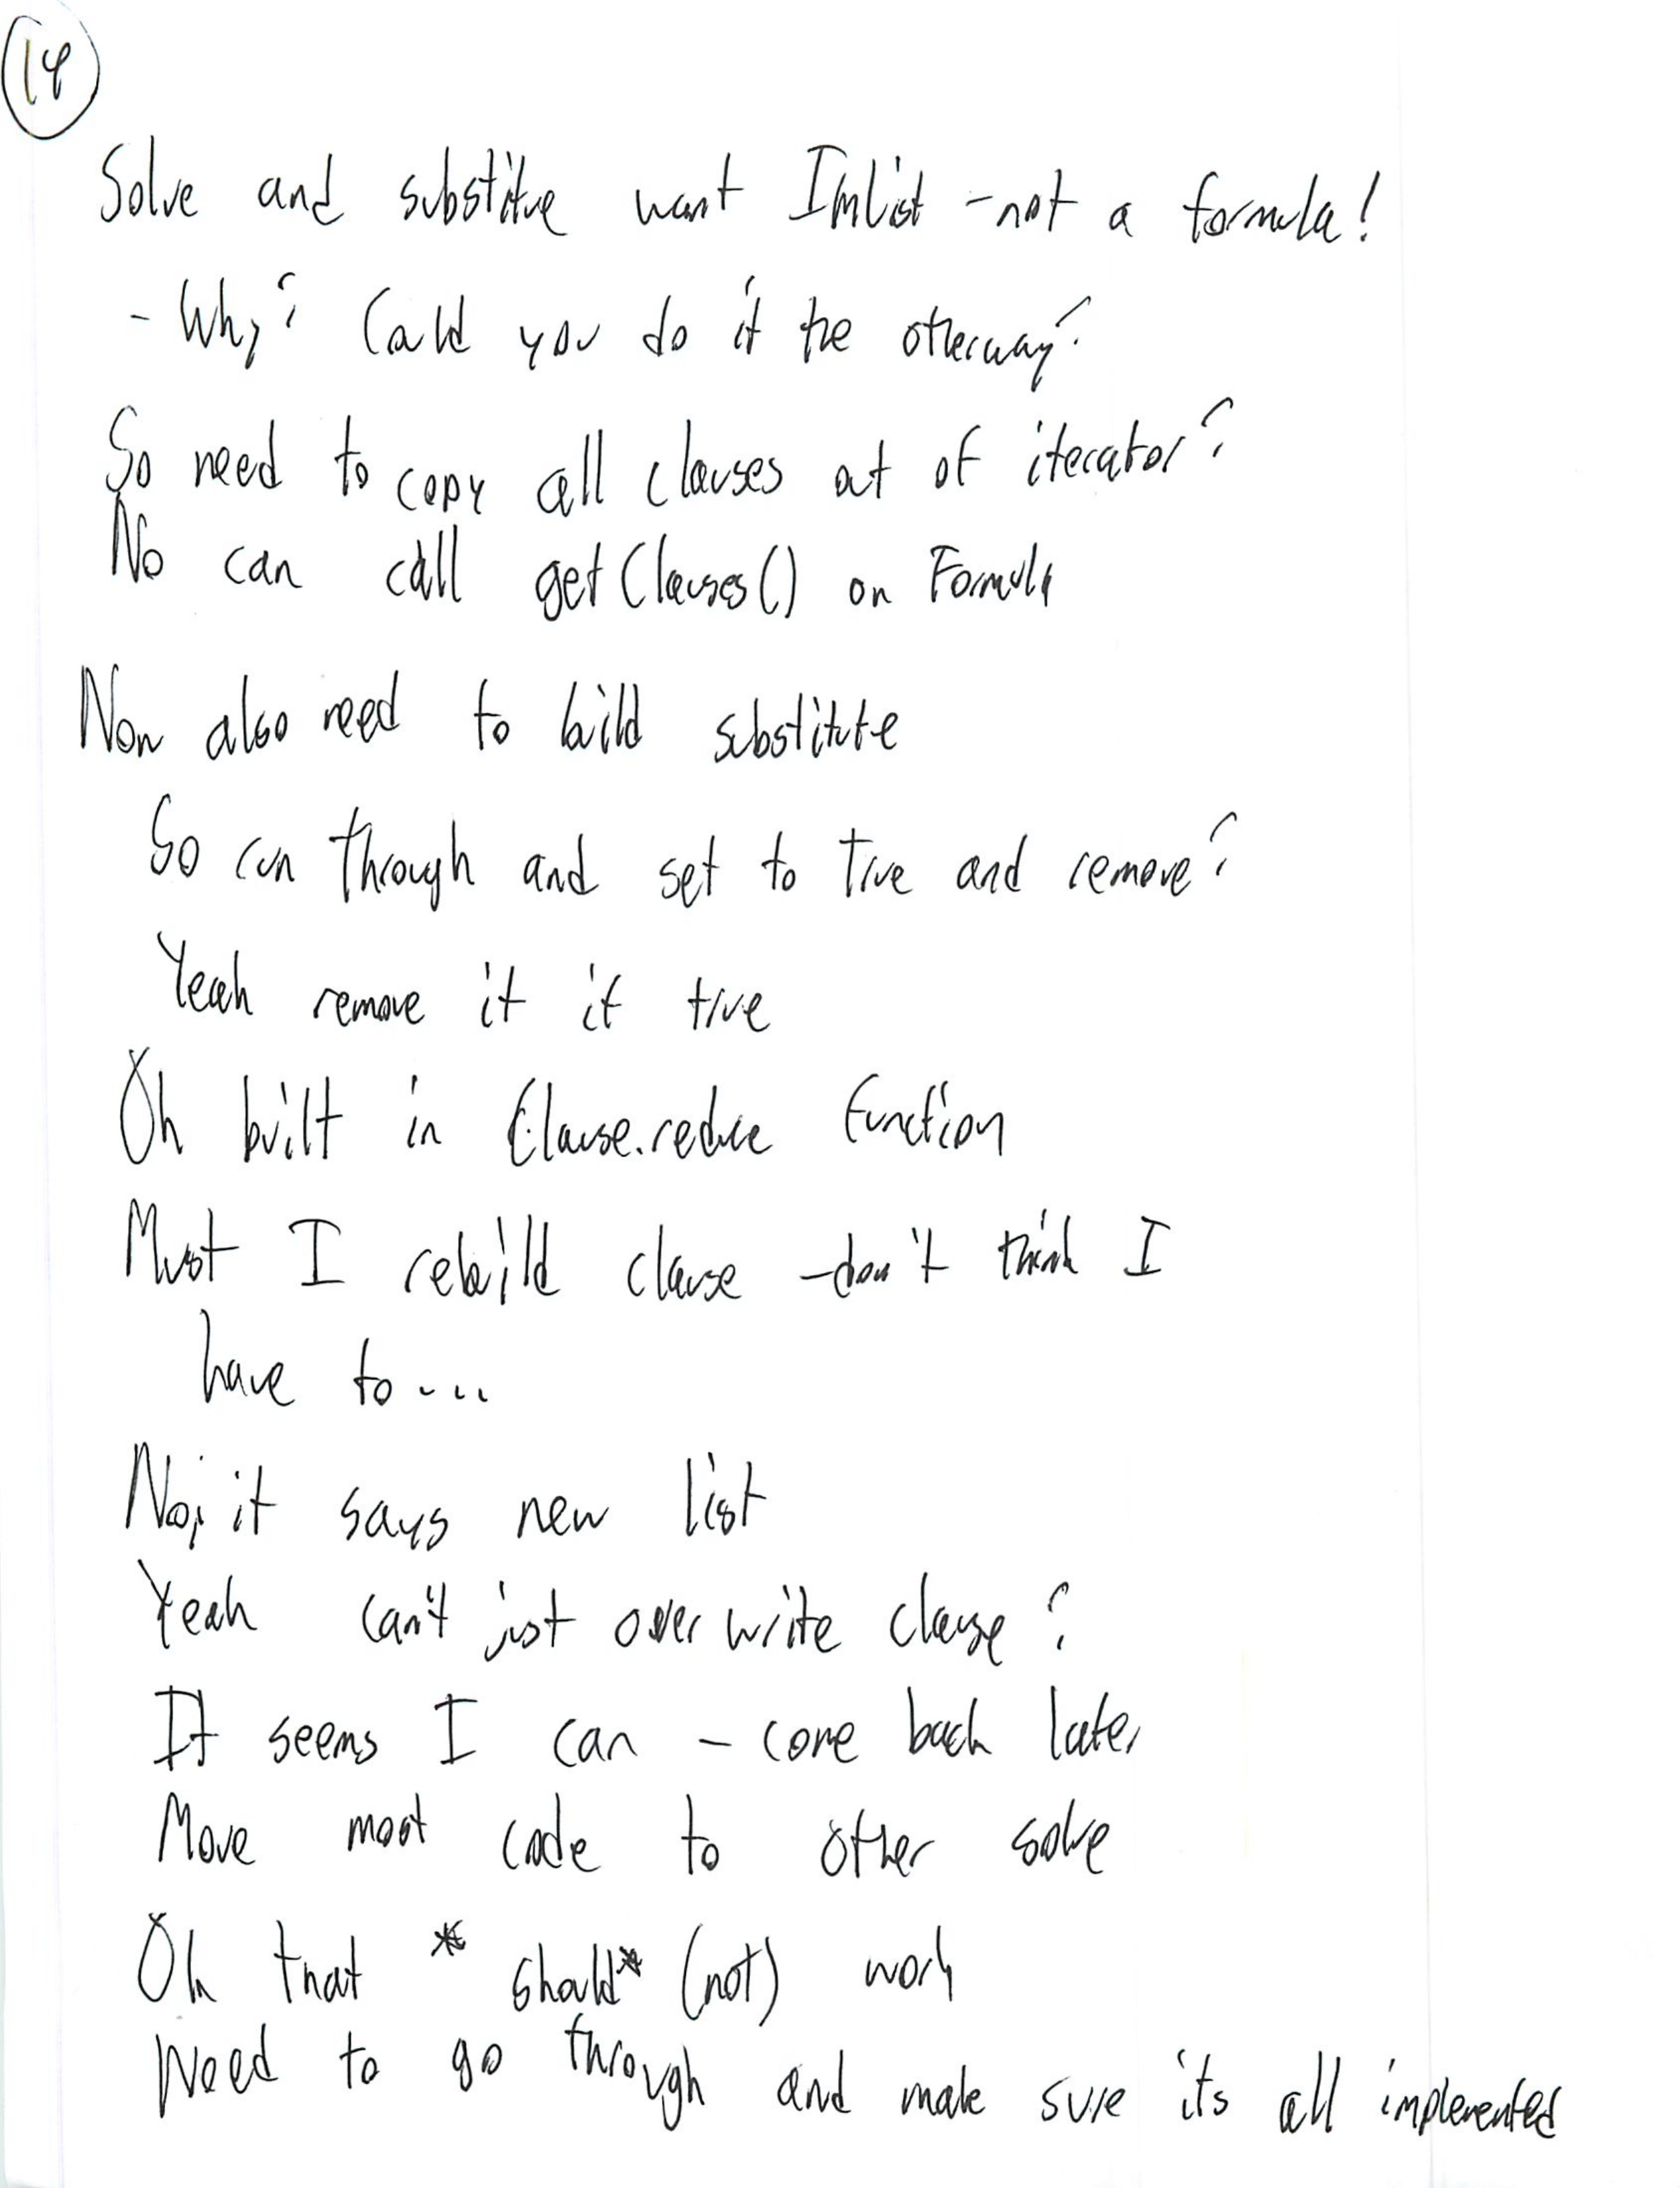 14
Solve and substitue want ImList - not a formula!
- Why? Could you do it the otherway?
So need to copy all clauses out of iterator?
No can call getClauses() on Formula
Now also need to build substitute
So run through and set to True and remove?
Yeah remove it if true
Oh built in Clause.reduce function
Must I rebuild clause - don't think I
have to....
No, it says new list
Yeah can't just over write clause?
It seems I can - come back later
Move most code to other solve
Oh that *should* (not) work
Need to go through and make sure its all implemented